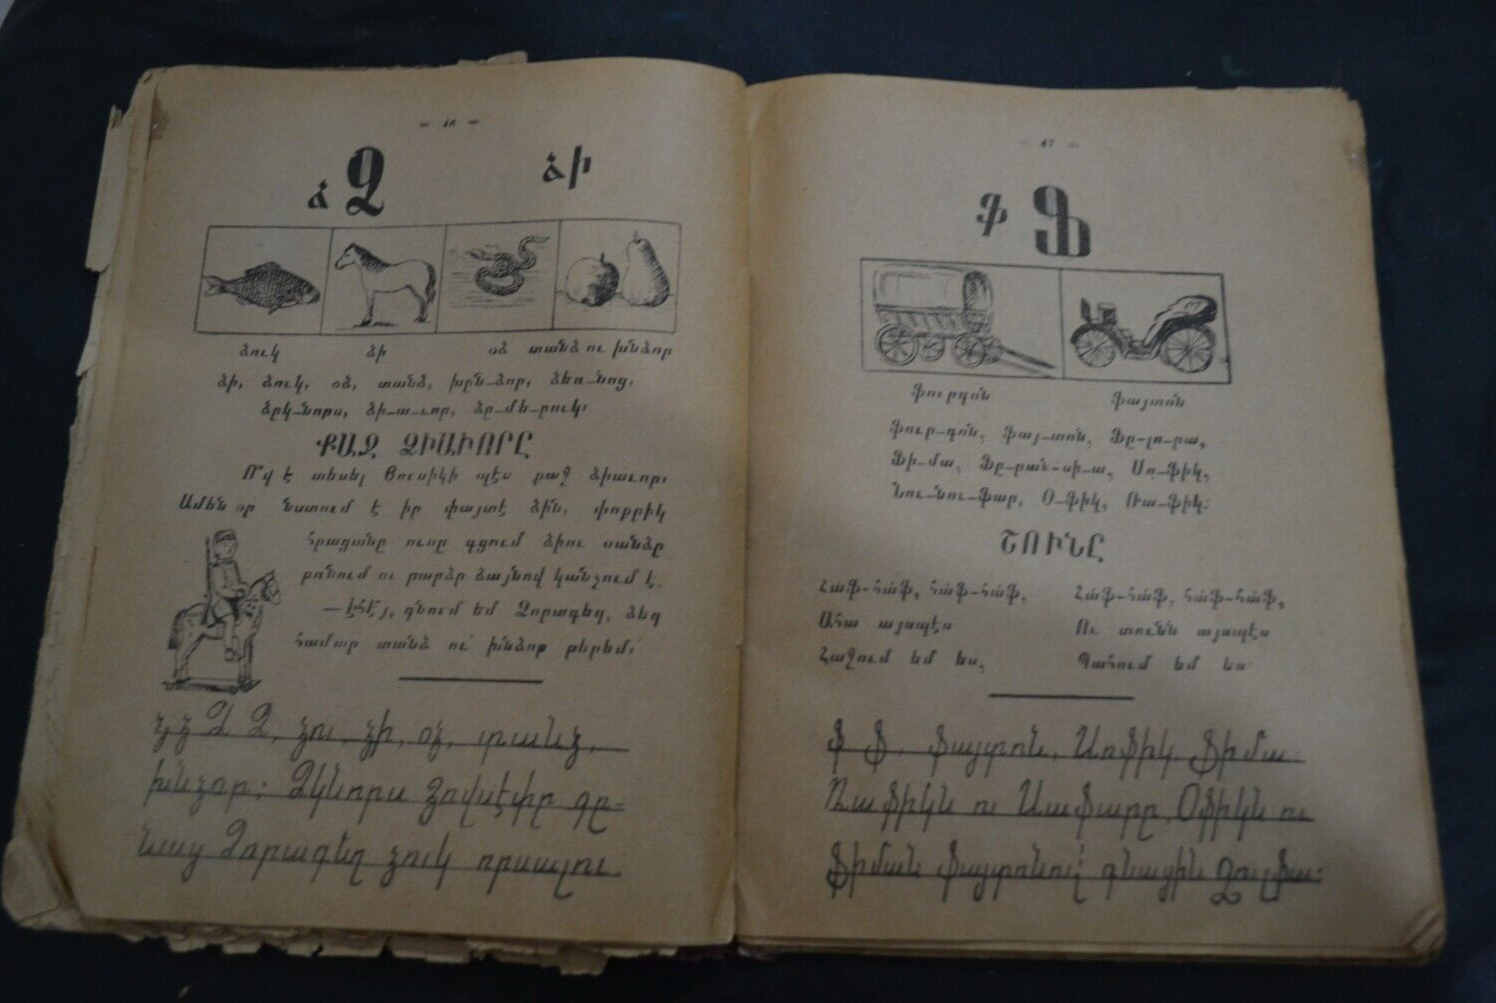 — 46 —
ձ Ձ ձի
ձուկ ձի օձ տանձ ու խնձոր
ձի, ձուկ, օձ, տանձ, խըն–ձոր, ձեռ–նոց,
ձըկ–նորս, ձի–ա–ւոր, ձը–մե–րուկ։
ՔԱՋ ՁԻԱՒՈՐԸ
Ո՞վ է տեսել Յուսիկի պէս քաջ ձիաւոր։
Ամեն օր նստում է իր փայտէ ձին, փոքրիկ
հրացանը ուսը գցում ձիու սանձը
բռնում ու բարձր ձայնով կանչում է.
—Էհէյ, գնում եմ Ձորագեղ, ձեզ
համար տանձ ու խնձոր բերեմ։
ձ ձ Ձ Ձ, ձու, ձի, օձ, տանձ,
խնձոր։ Ձկնորս Յովսէփը գը–
նաց Ձորագեղ ձուկ որսալու
— 47 —
ֆ Ֆ
ֆուրգոն ֆայտոն
ֆուր–գոն, ֆայ–տոն, Ֆը–լո–րա,
Ֆի–մա, Ֆը–րան–սի–ա, Սո–ֆիկ,
Նու–նու–ֆար, Օ–ֆիկ, Ռա–ֆիկ։
ՇՈՒՆԸ
Հաֆ–հաֆ, հաֆ–հաֆ,
Ահա այսպէս
Հաջում եմ ես,
Հաֆ–հաֆ, հաֆ–հաֆ,
Ու տունն այսպէս
Պահում եմ ես
ֆ Ֆ. ֆայտոն, Սոֆիկ, Ֆիմա։
Ռաֆիկն ու Սաֆարը, Օֆիկն ու
Ֆիման ֆայտոնով գնացին Ջուլֆա։